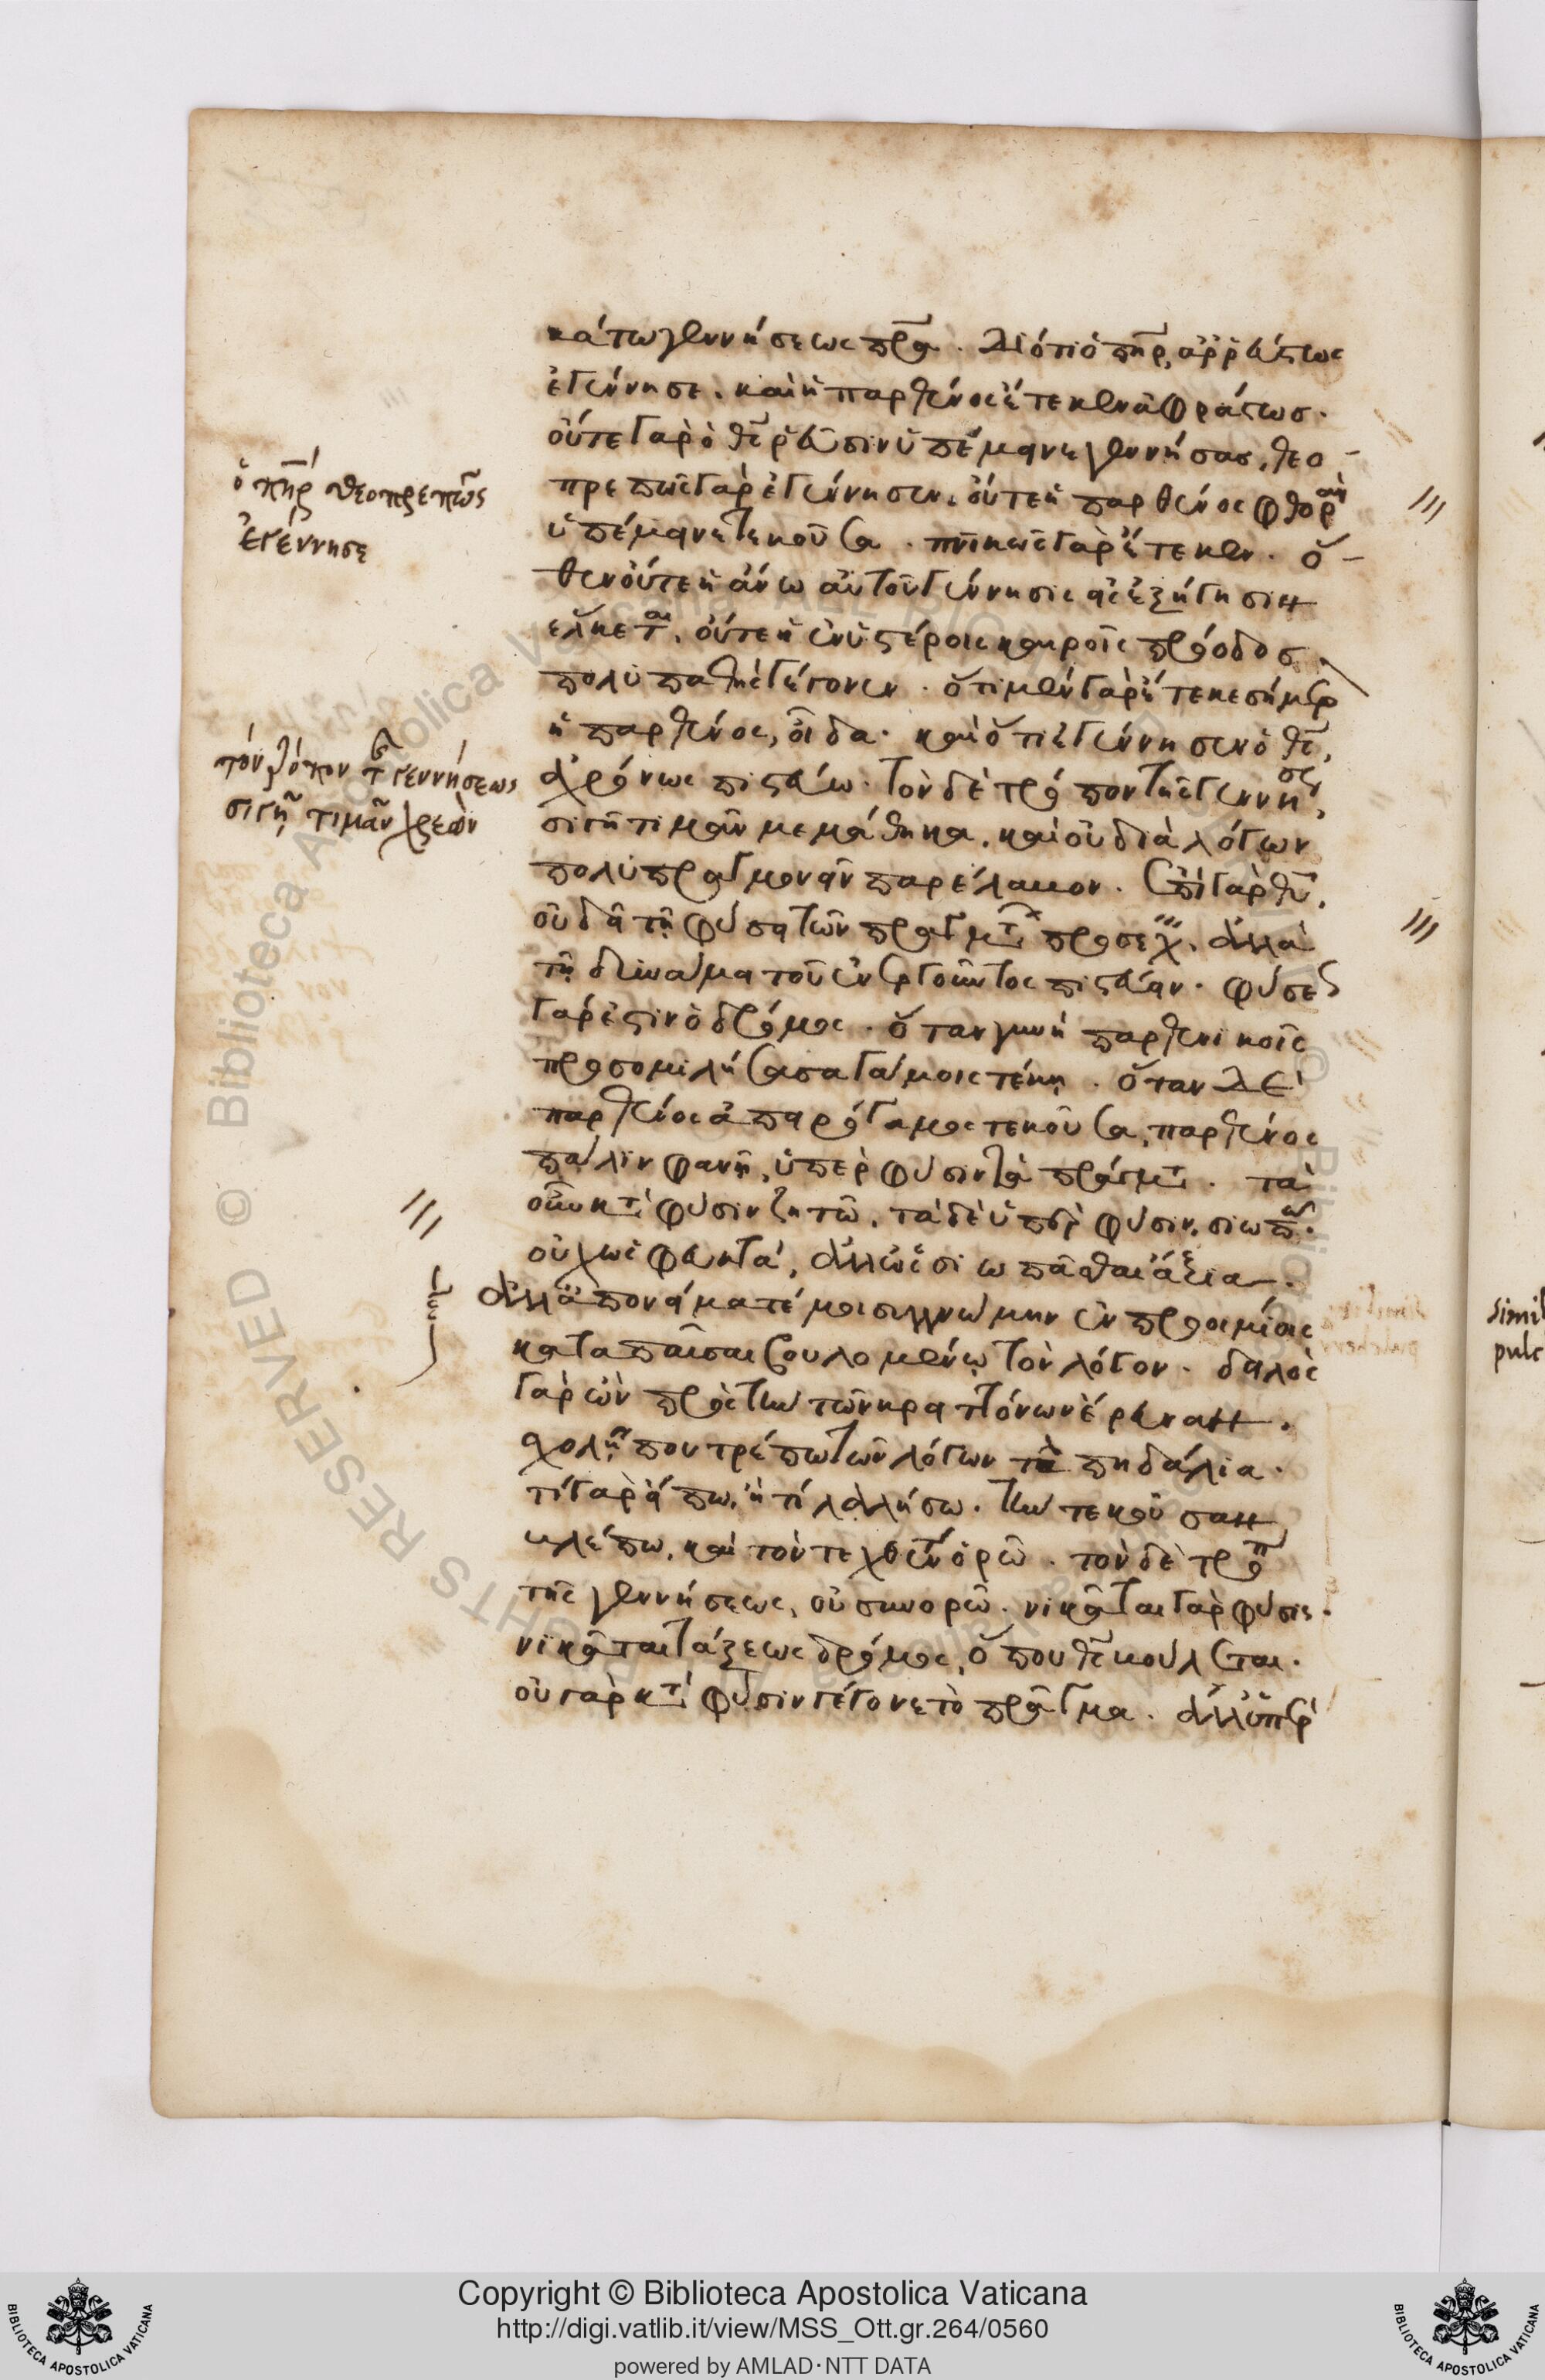 κάτω γεννήσεως πρα. διότι ὁ πηρ, ἀρρεύστως
ἐγέννησε. καὶ ἡ παρθένος ἔτεκεν ἀφράστωσ.
οὔτε γὰρ ὁ θς ῥεῦσιν ὑπέμεινε γεννήσασ. θεο-
πρεπῶς γὰρ ἐγέννησεν. οὔτε ἡ παρθένος φθορὰν
ὑπέμεινε τεκοῦσα. πνικῶς γὰρ ἔτεκεν. ὅ-
θεν οὔτε ἡ ἄνω αὐτοῦ γέννησις εἰς ἐξήγησιν
ἕλκεται. οὔτε ἡ ἐν ὑστέροις καιροῖς πρόοδοσ
πολυπαθὴς γέγονεν. ὅτι μὲν γὰρ ἔτεκε σήμερ
ἡ παρθένος, οἶδα. καὶ ὅτι ἐγέννησεν ὁ θς,
ἀχρόνως πιστεύω. τὸν δὲ τρόπον τῆς γεννησε,
σιγῆ τιμᾶν μεμάθηκα. καὶ οὐ διὰ λόγων
πολυπραγμονεῖν παρέλαβον. ἐπὶ γὰρ θυ,
οὐ δεῖ τῆ φύσει τῶν πραγμτ προσέχ. ἀλλὰ
τῆ δυνάμει τοῦ ἐνεργοῦντος πιστεύειν. φύσεως
γάρ ἐστιν ὁ δρόμος. ὅταν γυνὴ παρθενικοῖς
προσομιλήσασα γάμοις τέκη. ὅταν δὲ
παρθένος ἀπειρόγαμος τεκοῦσα, παρθένος
πάλιν φανῆ, ὑπὲρ φύσιν τὸ πράγμτ. τὰ
οὖν κτ φύσιν ζητῶ. τὰ δὲ ὑπὲρ φύσιν, σιωπῶ.
οὐχ ὡς φευκτά, ἀλλ' ὡς σιωπᾶσθαι ἄξια.
ἀλλὰ πονείματέ μοι συγγνώμην ἐν προοιμίοις
καταπαῦσαι βουλομένω τὸν λόγον. δειλὸς
γὰρ ὢν πρὸς τὴν τῶν κρειττόνων ἔρευναν.
οὐχ ὅλη που τρέπω τῶν λόγων τὰ πηδάλια.
τί γὰρ εἴπω, ἢ τί λαλήσω. τὴν τεκοῦσαν
βλέπω. καὶ τὸν τεχθέντ ὁρῶ. τὸν δὲ τρόπ
τῆς γεννήσεως, οὐ συνορῶ. νικᾶται γὰρ φύσις.
νικᾶται τάξεως δρόμος, ὅπου θς βούλεται.
οὐ γὰρ κτ φύσιν γέγονε τὸ πρᾶγμα. ἀλλ' ὑπὲρ
ὁ πηρ θεοπρεπῶς
ἐγέννησε
τὸν τρόπον τ γεννήσεως
σιγῆ τιμᾶν χρεών
simil
pulc
Copyright © Biblioteca Apostolica Vaticana
http://digi.vatlib.it/view/MSS_Ott.gr.264/0560
powered by AMLAD·NTT DATA
BIBLIOTECA APOSTOLICA VATICANA
BIBLIOTECA APOSTOLICA VATICANA